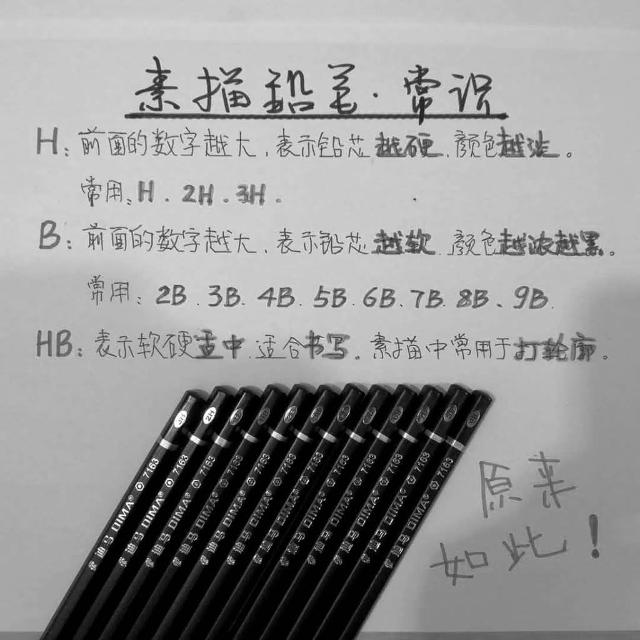 素描铅笔·常识
H：前面的数字越大，表示铅芯越硬，颜色越淡。
常用：H．2H．3H。
B：前面的数字越大，表示铅芯越软，颜色越浓越黑。
常用：2B．3B．4B．5B．6B．7B．8B、9B．
HB：表示软硬适中，适合书写，素描中常用于打轮廓。
原来
如此！
帝迪马 DIMA® 7163
DIMA® 7163
DIMA® 7163
DIMA® 7163
DIMA® 7163
DIMA® 7163
DIMA® 7163
DIMA® 7163